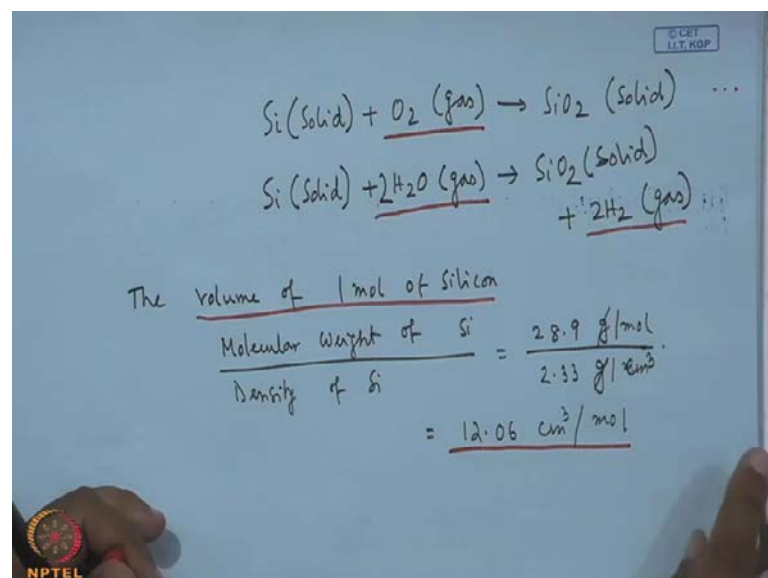 © CET
I.I.T. KGP
Si (Solid) + O2 (gas) → SiO2 (Solid) ...
Si (Solid) + 2H2O (gas) → SiO2 (Solid)
+ 2H2 (gas)
The volume of 1 mol of Silicon
Molecular Weight of Si / Density of Si = 28.9 g/mol / 2.33 g/cm³.
= 12.06 cm³/mol
NPTEL